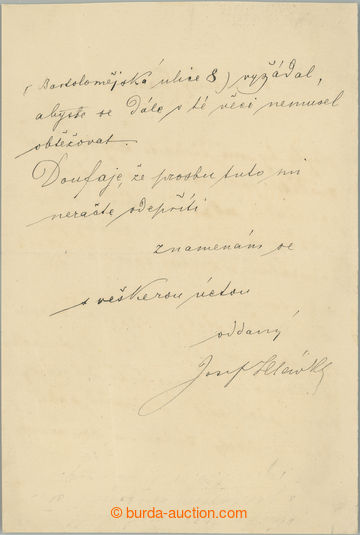 ( Bartolomějská ulice 8 ) vyžádal,
abyste se dále s té věci nemusel
obtěžovat.
Doufaje, že prosbu tuto mi
neračte odepříti
znamenám se
s veškerou úctou
oddaný
Josef Hlávka
© burda-auction.com